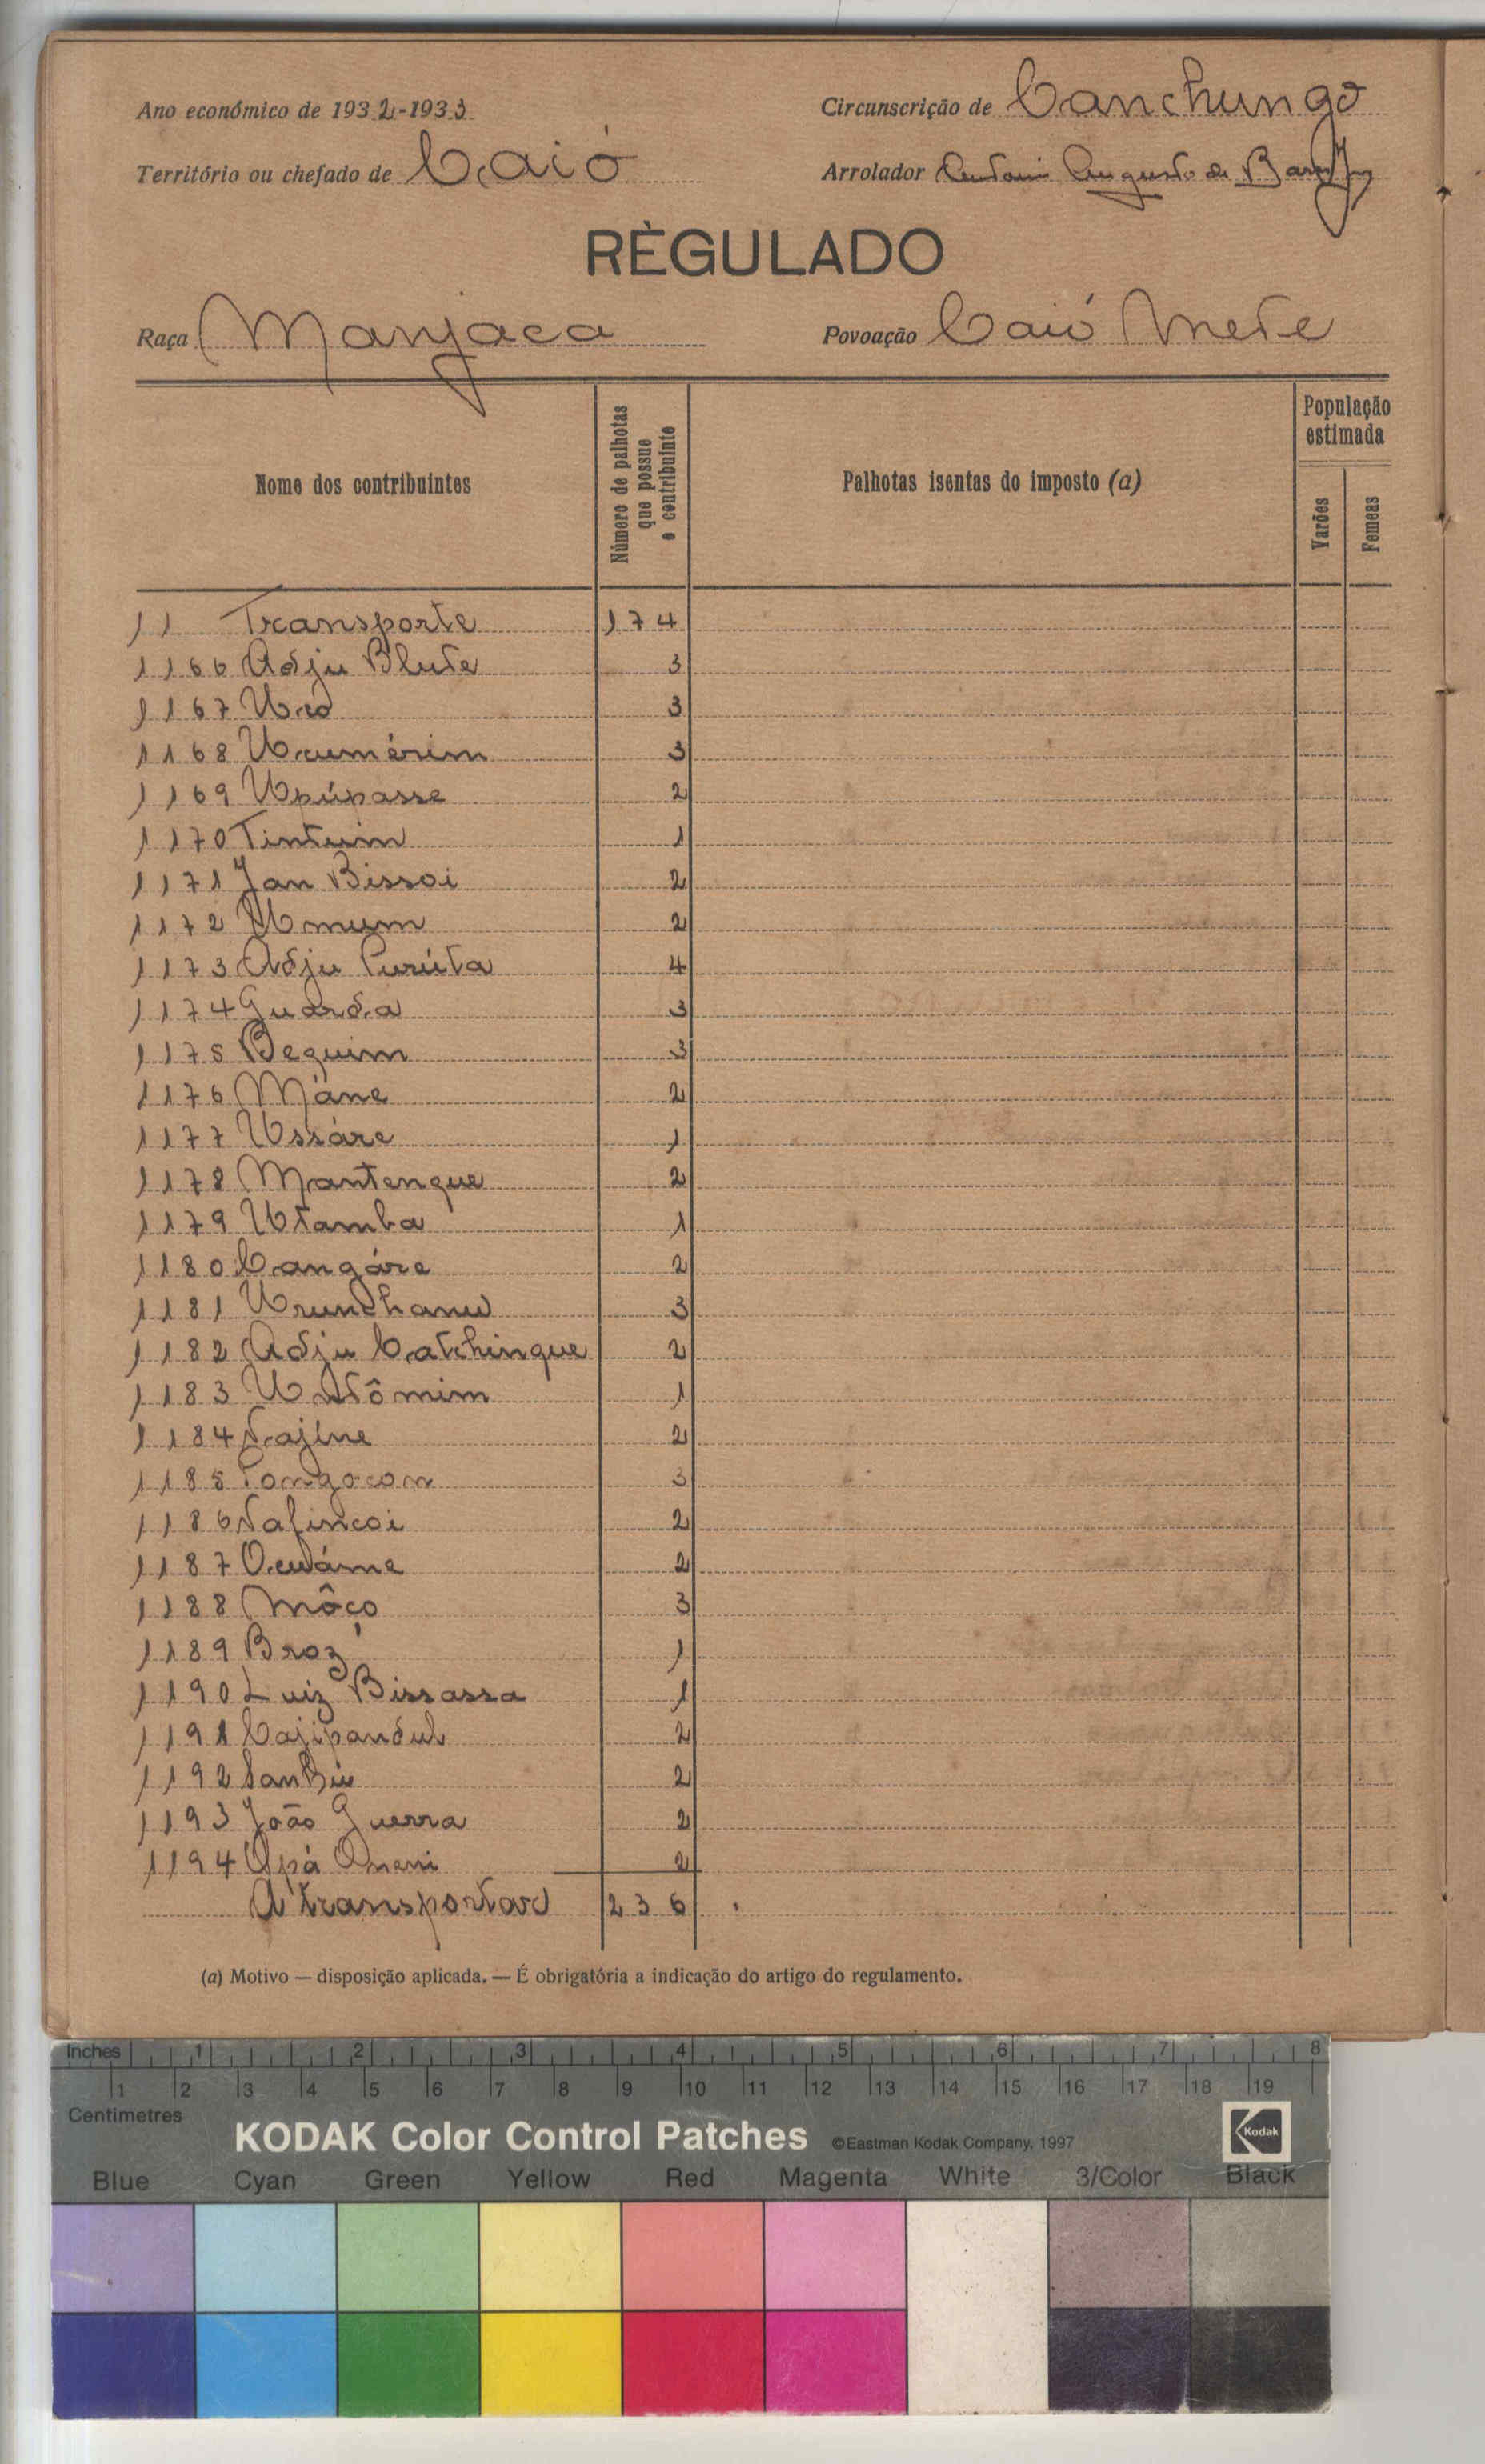 Ano económico de 1932-1933 Circunscrição de Canchungo
Território ou chefado de Caió Arrolador Antonio Augusto de
RÈGULADO
Raça Manjaca Povoação Caió Mete
Nome dos contribuintes
Número de palhotas
que possue
o contribuinte
Palhotas isentas do imposto (a)
População
estimada
Varões
Femeas
11 Transporte 174
1166 Adju Blute 3
1167 3
1168 Ucumérim 3
1169 Upúpasse 2
1170 Tintuim 1
1171 Jan Bissoi 2
1172 Umum 2
1173 Adju Curúta 4
1174 Guarda 3
1175 Beguim 3
1176 Mane 2
1177 Ussáre 1
1178 Mantengue 2
1179 Utamba 1
1180 Cangáre 2
1181 3
1182 Adju Catchingue 2
1183 1
1184 2
1185 3
1186 2
1187 2
1188 Môço 3
1189 Broz 1
1190 Luiz Bissassa 1
1191 Cajipandul 2
1192 2
1193 João Guerra 2
1194 2
A transportar 236
(a) Motivo — disposição aplicada. — É obrigatória a indicação do artigo do regulamento.
Inches 1 2 3 4 5 6 7 8
1 2 3 4 5 6 7 8 9 10 11 12 13 14 15 16 17 18 19
Centimetres
KODAK Color Control Patches ©Eastman Kodak Company, 1997 Kodak
Blue Cyan Green Yellow Red Magenta White 3/Color Black